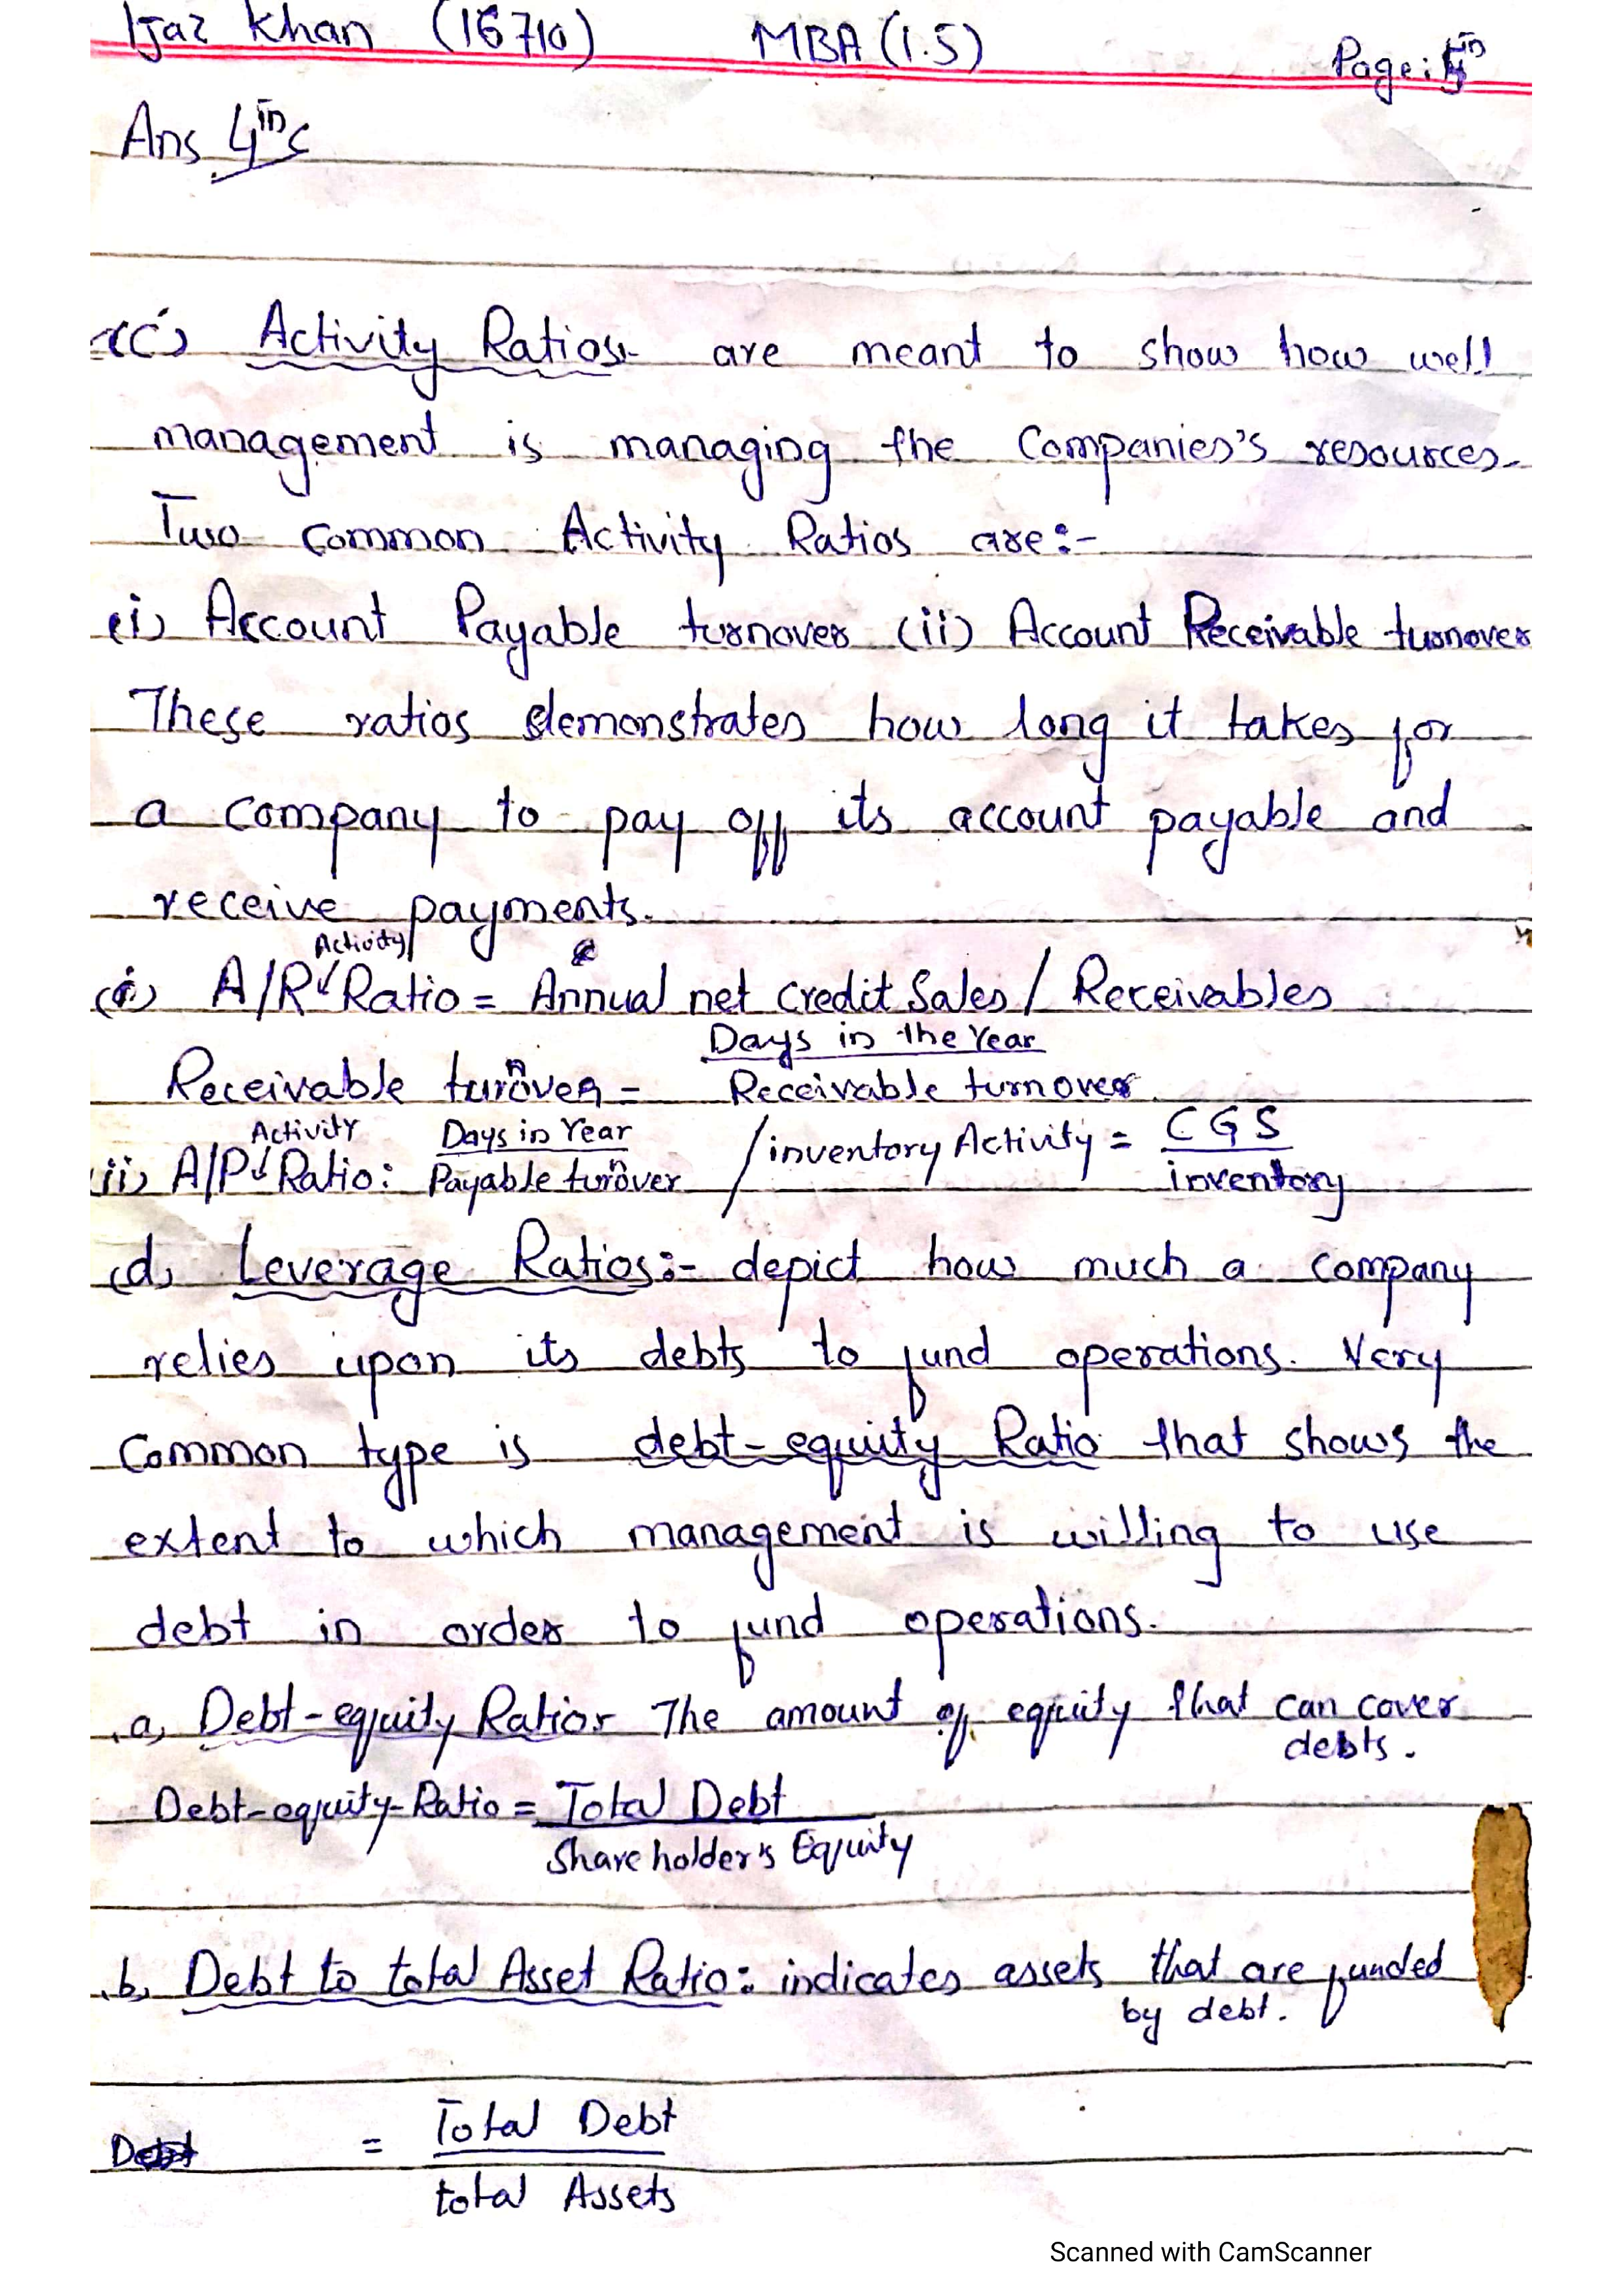 Ijaz Khan (16710) MBA (1.5) Page:
Ans 4
(c) Activity Ratios:- are meant to show how well
management is managing the Companies's resources.
Two common Activity Ratios are:-
(i) Account Payable turnover (ii) Account Receivable turnover
These ratios demonstrates how long it takes for
a company to pay off its account payable and
receive payments.
(i) A/R Activity Ratio = Annual net credit Sales / Receivables
Receivable turnover = Days in the Year / Receivable turnover
(ii) A/P Activity Ratio: Days in Year / Payable turnover / inventory Activity = CGS / inventory
(d) Leverage Ratios:- depict how much a company
relies upon its debts to fund operations. Very
Common type is debt-equity Ratio that shows the
extent to which management is willing to use
debt in order to fund operations.
(a) Debt-equity Ratio:- The amount of equity that can cover
debts.
Debt-equity-Ratio = Total Debt
Shareholder's Equity
(b) Debt to total Asset Ratio: indicates assets that are funded
by debt.
= Total Debt
total Assets
Scanned with CamScanner